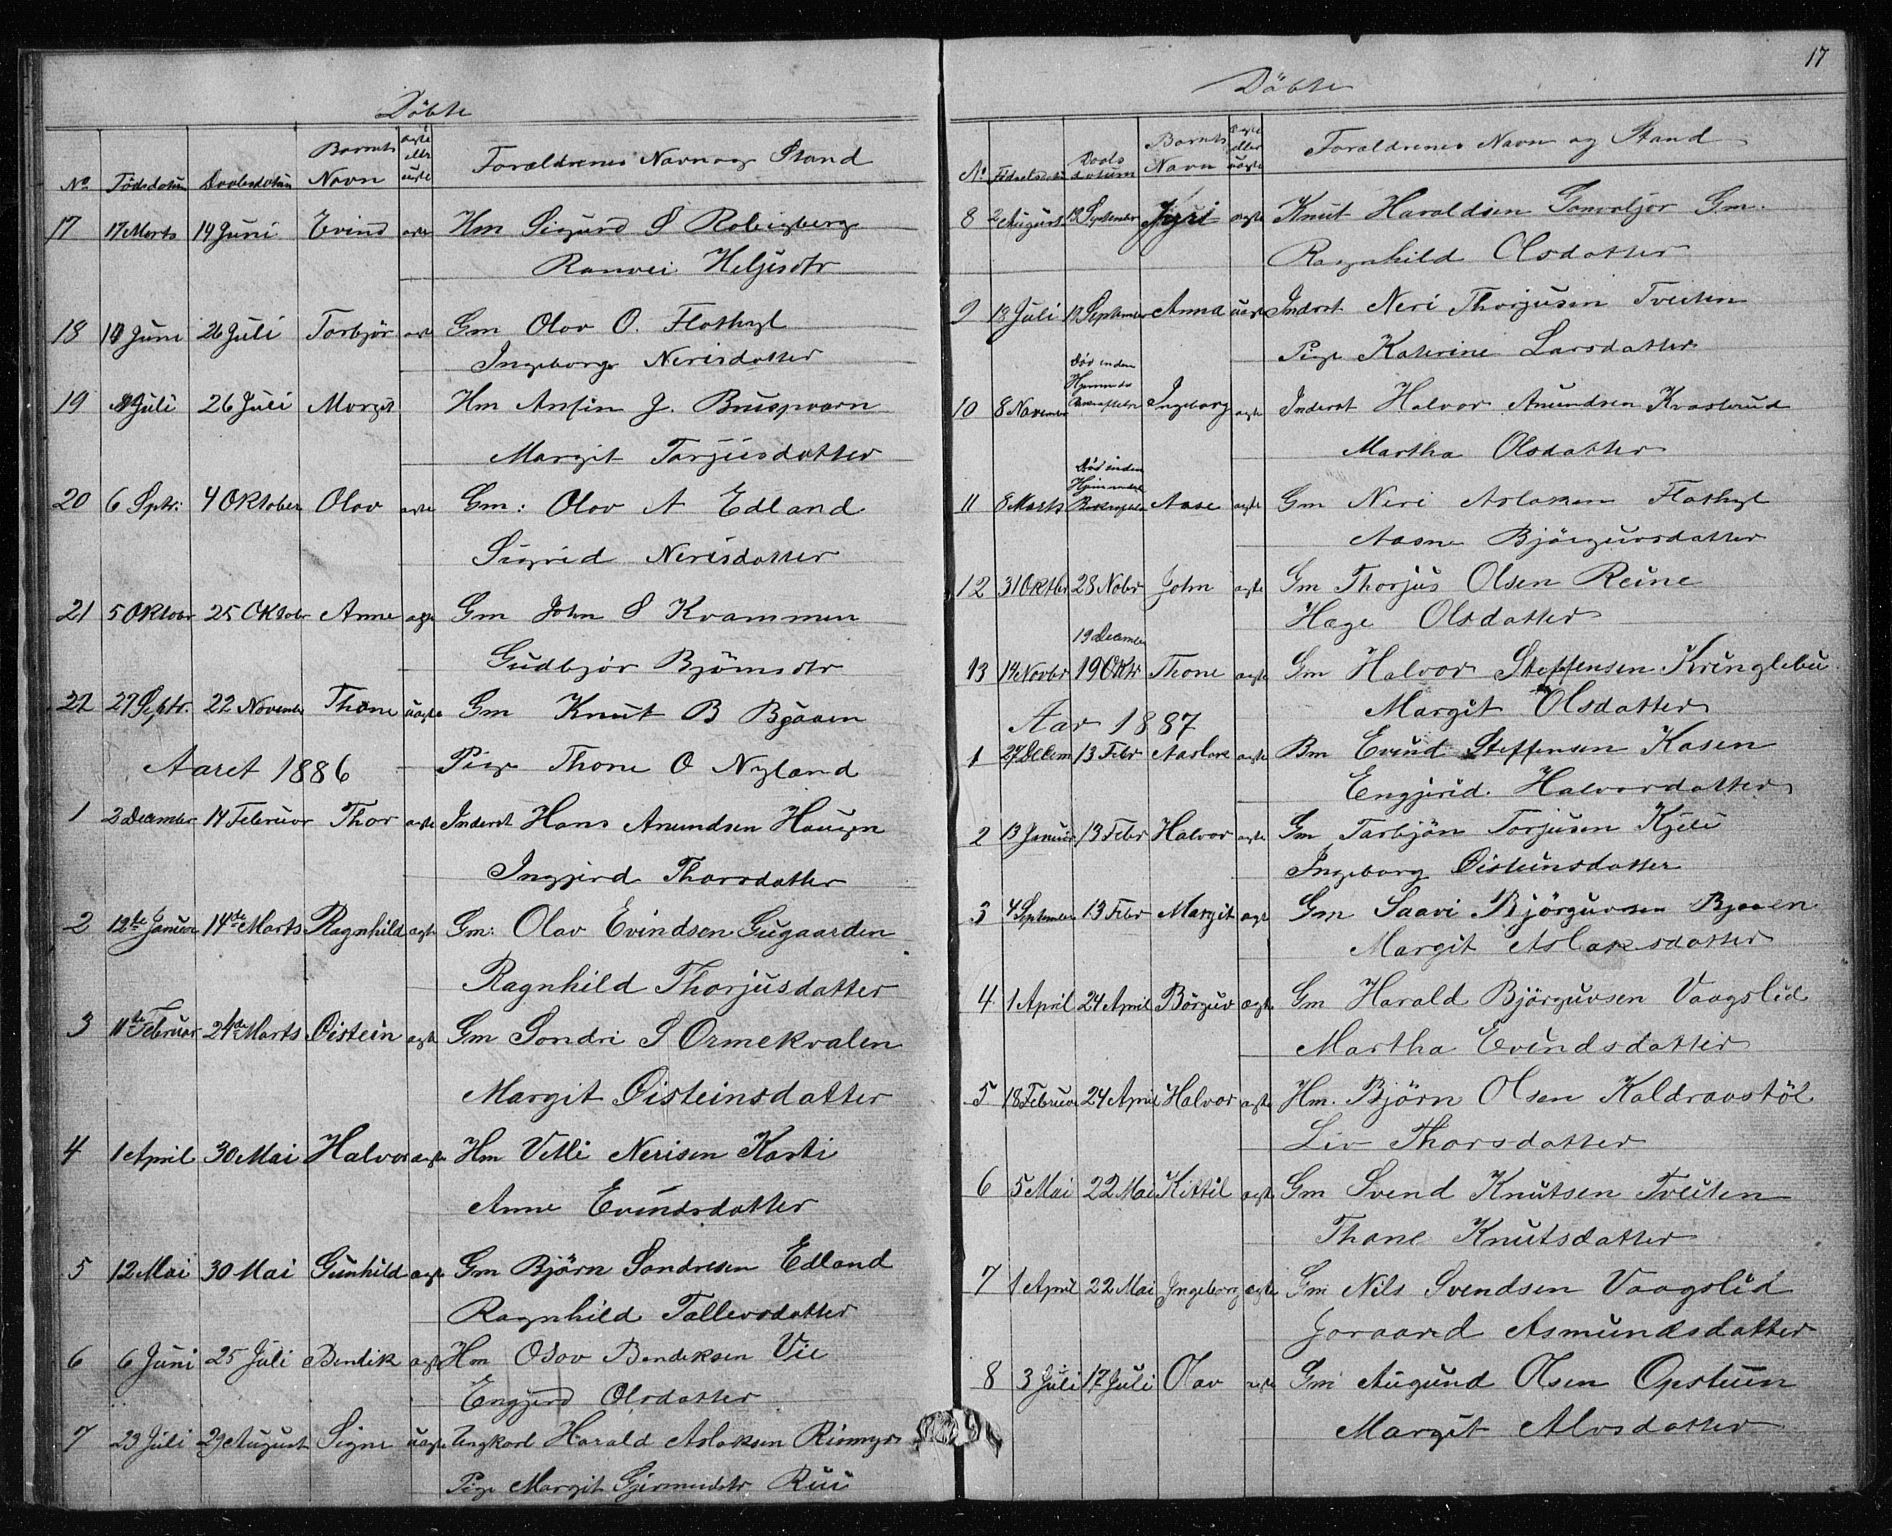 Döbte
No. Födsdatum Daabsdatum Barnets Navn ægte eller uægte Forældrenes Navn og Stand
17 17 Marts 14 Juni Evind ægte Hm Sigurd S
Ranvei Heljesdtr
18 Juni 26 Juli Torbjör ægte Gm Olav O. Flothyl
Ingeborg Nerisdatter
19 Juli 26 Juli Margit Hm Anfin J.
Margit Tarjusdatter
20 6 Sptr: 4 Oktober Olav ægte Gm: Olav A Edland
Sigrid Nerisdatter
21 5 Oktobr 25 Oktobr Anne ægte Gm John S Kvammen
Gudbjör Björnsdtr
22 27 Sptr. 22 November Thone uægte Gm Knut B Bjaaen
Aaret 1886 Pige Thone O Nyland
1 2 December 14 Februar Thor ægte Inderst Hans Amundsen Haugen
Ingjerd Thorsdatter
2 12te Januar 14de Marts Ragnhild ægte Gm: Olav Evindsen Gugaarden
Ragnhild Thorjusdatter
3 11te Februar 24de Marts Oistein ægte Gm Sondri S Ormekvalen
Margit Öisteinsdatter
4 1 April 30 Mai Halvor ægte Hm Vetli Nerisen Kosti
Anne Evindsdatter
5 12 Mai 30 Mai Gunhild ægte Gm Björn Sondresen Edland
Ragnhild Tallevsdatter
6 6 Juni 25 Juli Bendik ægte Hm Olav Bendiksen Vie
Engjerd Olsdatter
7 23 Juli 29 August Signe uægte Ungkarl Harald Aslaksen
Pige Margit Gjermundsdtr Rui
17
Döbte
No. Födselsdatum Daabsdatum Barnets Navn ægte eller uægte Forældrenes Navn og Stand
8 2 August 12 September ægte Knut Haraldsen Gm.
Ragnhild Olsdatter
9 13 Juli 12 September Anna uægte Inderst Neri Thorjusen Tveiten
Pige Katerine Larsdatter
10 8 November Död inden Hjemmedaab Bekræftelse Ingeborg ægte Inderst Halvor Amundsen
Martha Olsdatter
11 8 Marts Död inden Hjemmedaab Bekræftelse Aase ægte Gm Neri Aslaksen Flothyl
Aasne Björguvsdatter
12 31 Oktbr 28 Nobr John ægte Gm Thorjus Olsen Reine
Hæge Olsdatter
19 December
13 14 Novbr 19 Oktr Thone ægte Gm Halvor Steffensen Kringlebu
Margit Olsdatter
Aar 1887
1 27 Decem 13 Febr Aaslaug ægte Bm Evind Steffensen Kasen
Engjerid. Halvorsdatter
2 13 Januar 13 Febr Halvor ægte Gm Tarbjön Torjusen Kjeli
Ingeborg Oisteinsdatter
3 4 September 13 Febr Margit ægte Gm Saavi Björguvsen Bjaaen
Margit Aslaksdatter
4 1 April 24 April Börguv ægte Gm Harald Björguvsen Vaagslid
Martha Evindsdatter
5 18 Februar 24 April Halvor ægte Hm. Björn Olsen Kaldraastöl
Liv Thorsdatter
6 5 Mai 22 Mai Kittil ægte Gm Svend Knutsen Tveiten
Thone Knutsdatter
7 1 April 22 Mai Ingeborg ægte Gm Nils Svendsen Vaagslid
Joraand Asmundsdatter
8 3 Juli 17 Juli Olav ægte Gm Augund Olsen Opstuun
Margit Alvsdatter